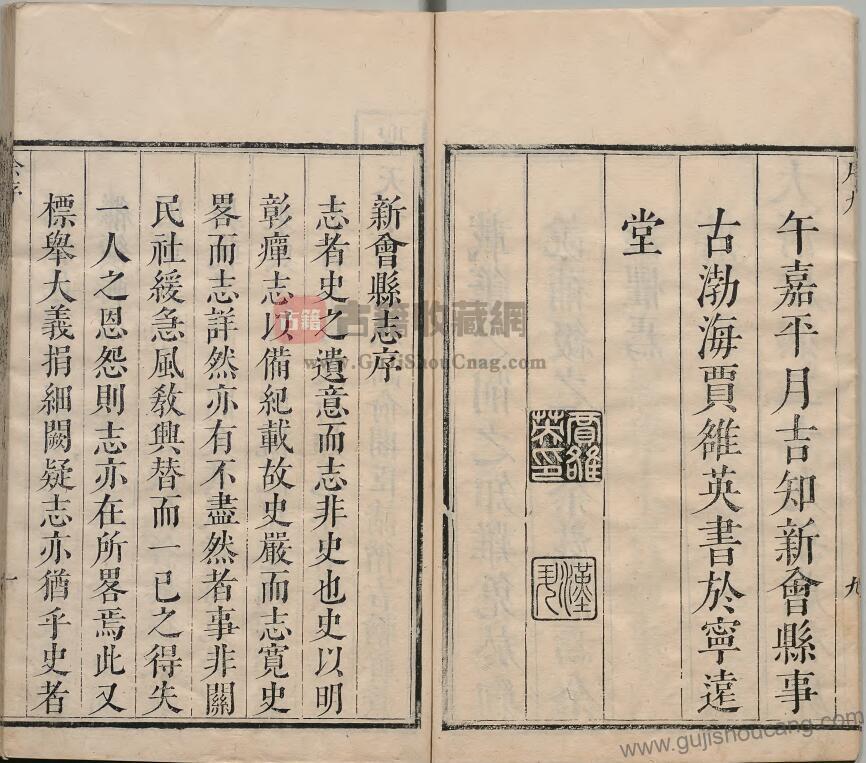 午嘉平月吉知新會縣事
古渤海賈雒英書於寧遠
堂
賈雒英印
漢
九
新會縣志序
志者史之遺意而志非史也史以明
彰癉志以備紀載故史嚴而志寛史
畧而志詳然亦有不盡然者事非關
民社緩急風敎興替而一已之得失
一人之恩怨則志亦在所畧焉此又
標舉大義捐細闕疑志亦猶乎史者
一
古籍
古籍收藏網
www.GuJiShouCnag.com
www.gujishoucang.com